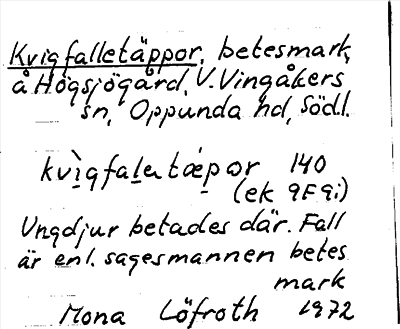 Kvigfalletäppor, betesmark,
å Högsjögård, V. Vingåkers
sn, Oppunda hd, Södl.
kvì̱gfaḻatǽp̱or 140
(ek 9F9i)
Ungdjur betades där. Fall
är enl. sagesmannen betes
mark
Mona Löfroth 1972